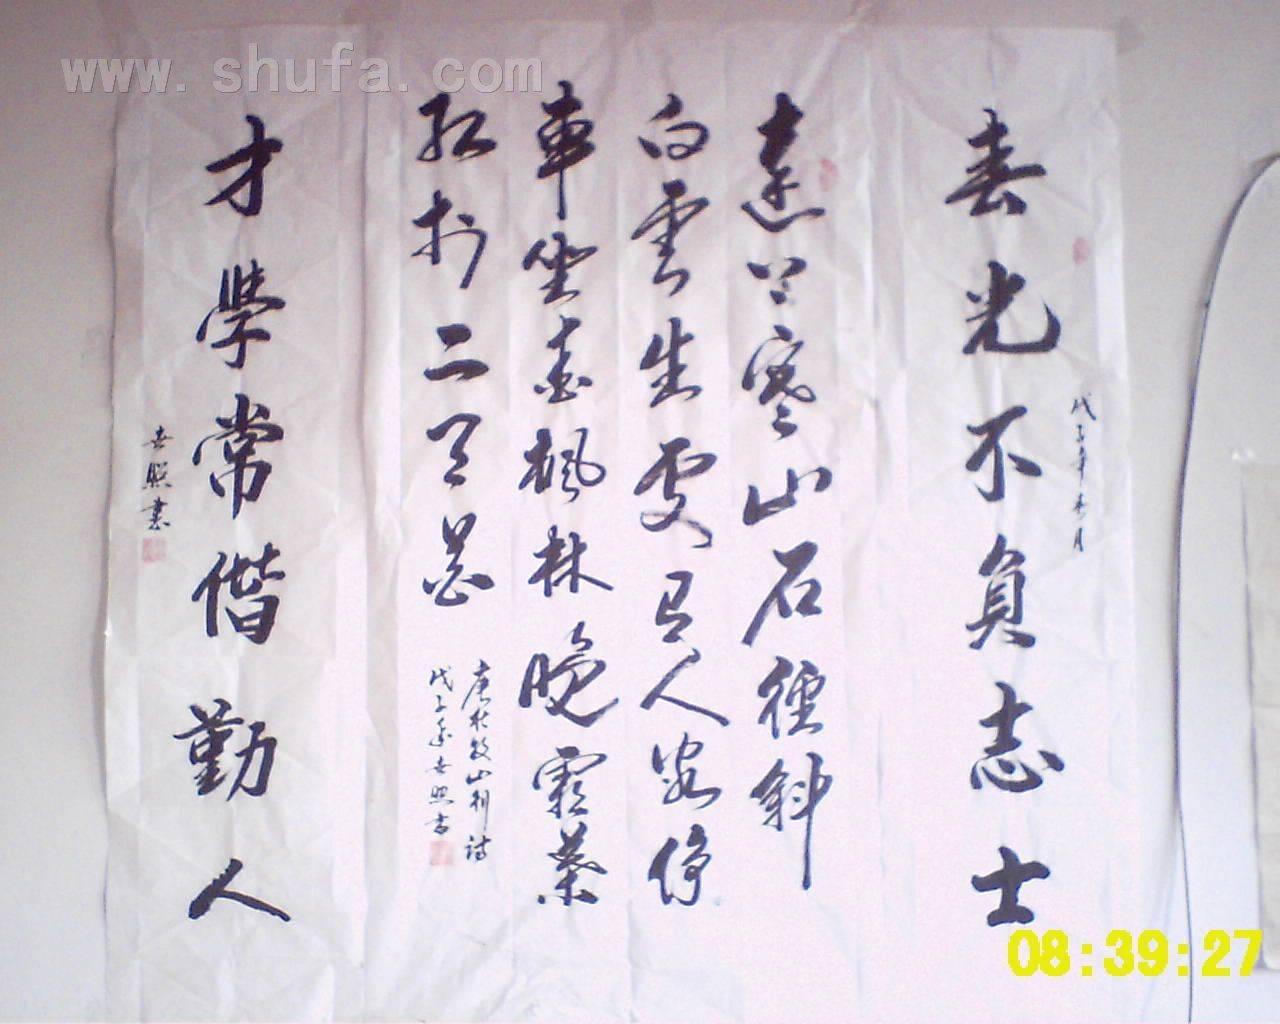 www.shufa.com
春光不負志士
戊子年月
遠上寒山石徑斜
白雲生處有人家停
車坐愛楓林晚霜葉
紅於二月花
唐杜牧山行詩
戊子世照書
才學常偕勤人
世照書
08:39:27